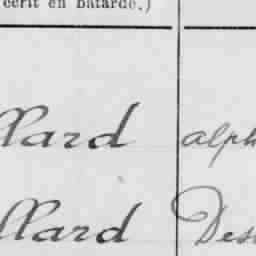 écrit en bâtarde.)
llard alph
llard Des